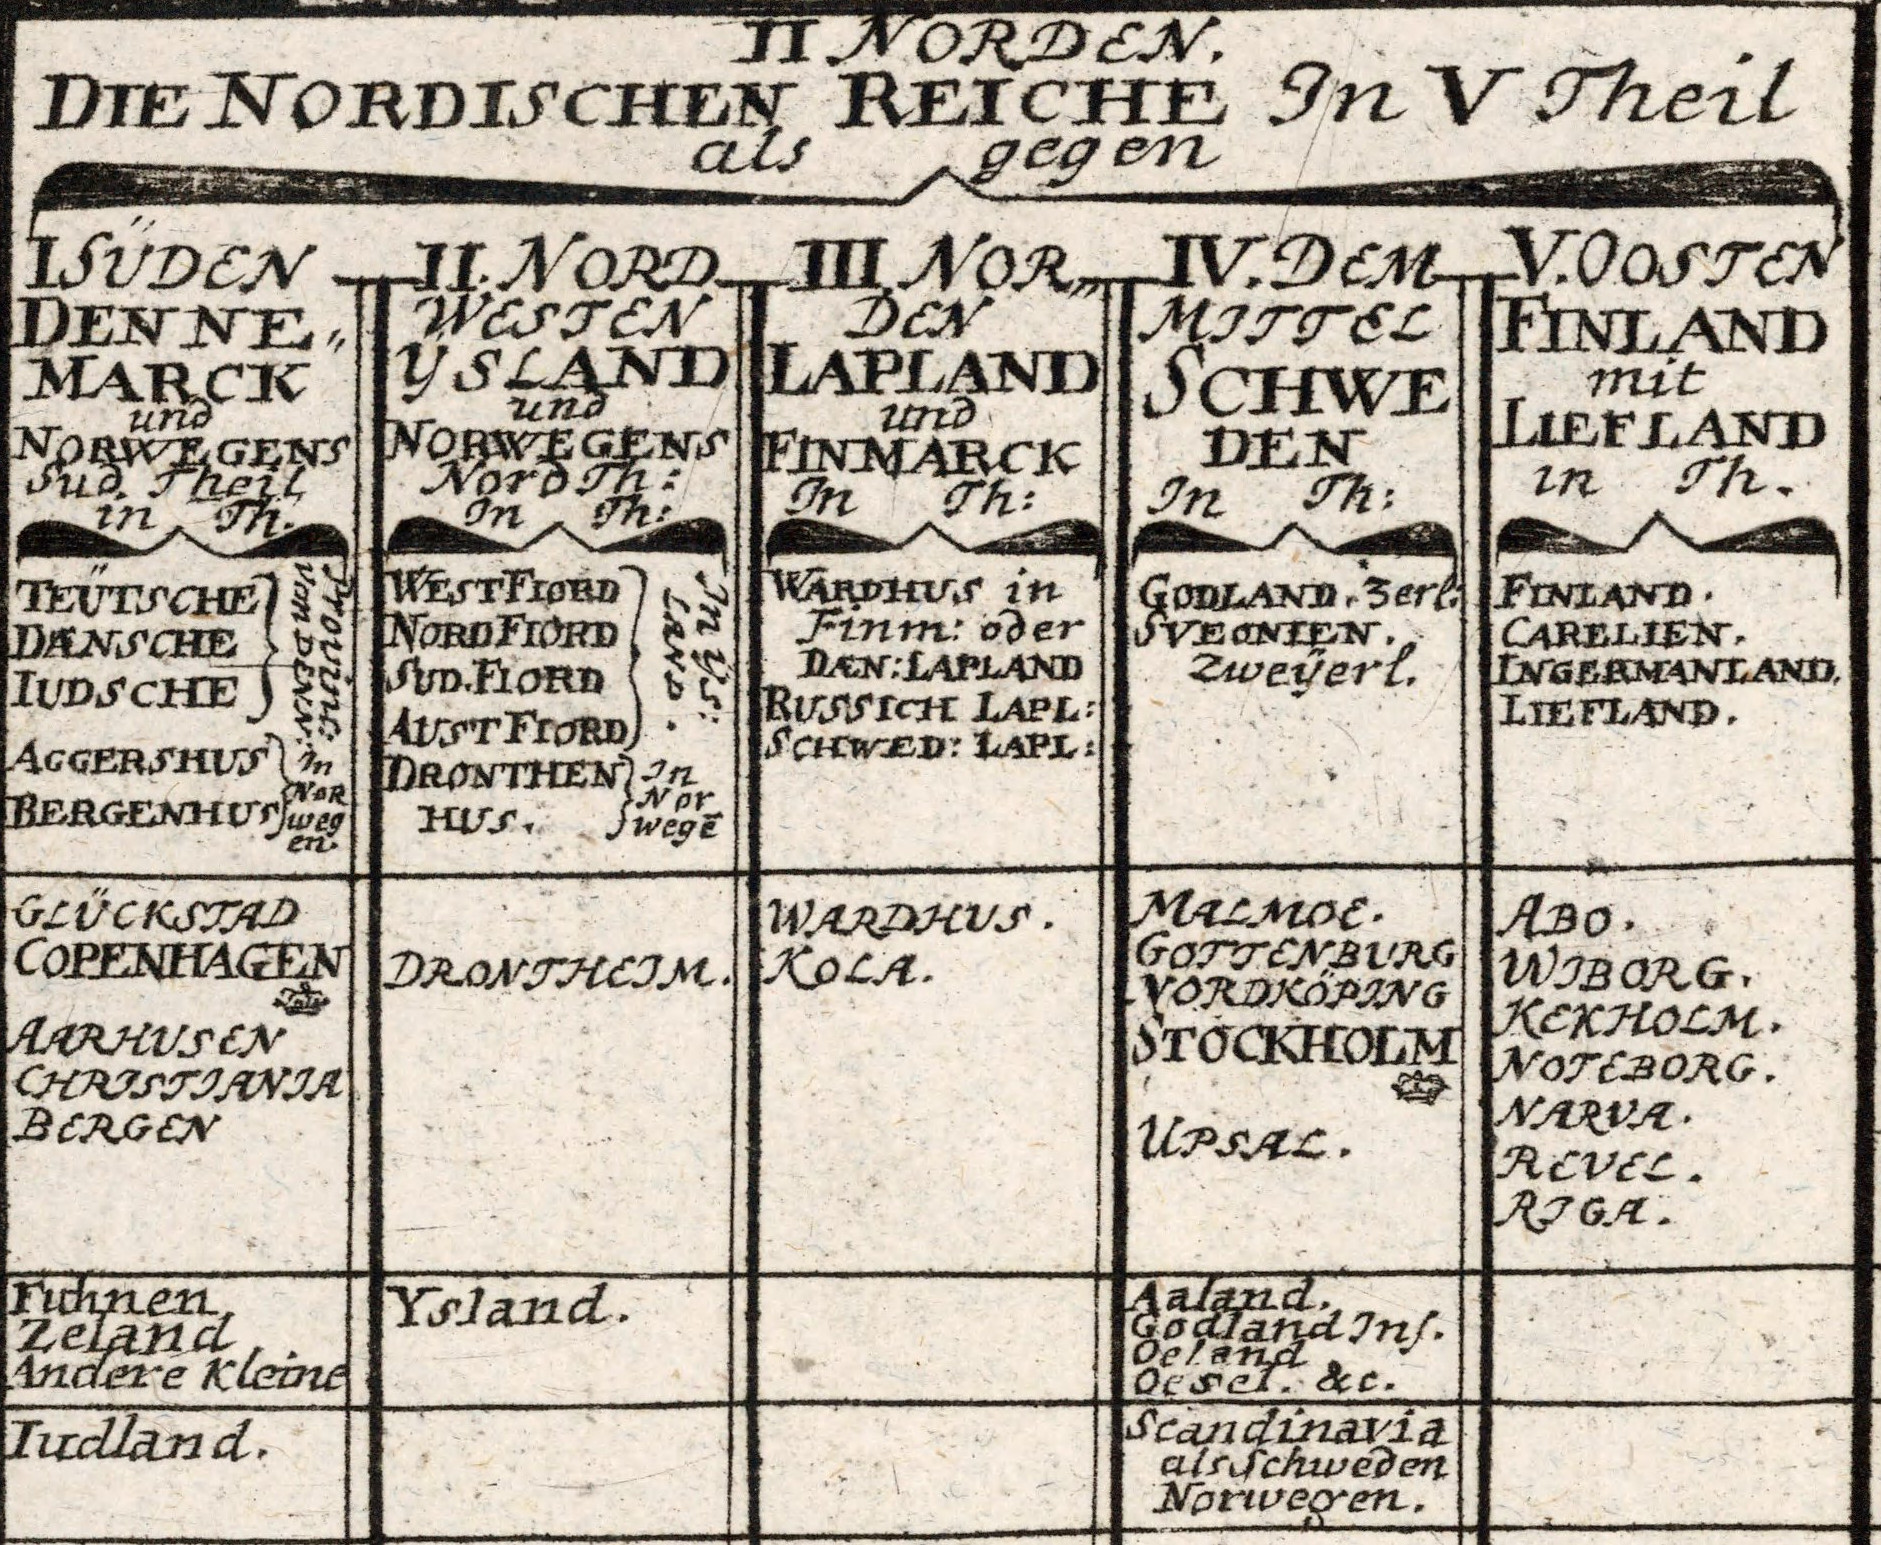 II NORDEN.
DIE NORDISCHEN REICHE In V Theil
als gegen
I SÜDEN
DENNE„
MARCK
und
NORWEGENS
Sud. Theil
in Th.
TEÜTSCHE
DÆNSCHE
IUDSCHE
Provinc:
Von DENN:
AGGERSHUS
BERGENHUS
in
NOR
weg
en.
GLÜCKSTAD
COPENHAGEN
AARHUSEN
CHRISTIANIA
BERGEN
Fuhnen
Zeland
Andere Kleine
Iudland.
II. NORD
WESTEN
ÿSLAND
und
NORWEGENS
Nord Th:
In Th:
WESTFIORD
NORDFIORD
SUD.FIORD
AUSTFIORD
In ÿs:
LAND.
DRONTHEN
HUS.
In
Nor
wegē
DRONTHEIM.
Ysland.
III NOR„
DEN
LAPLAND
und
FINMARCK
In Th:
WARDHUS in
Finm: oder
DÆN: LAPLAND
RUSSICH LAPL:
SCHWED: LAPL:
WARDHUS.
KOLA.
IV. DEM
MITTEL
SCHWE
DEN
In Th:
GODLAND. 3erl:
SVEONIEN.
zweÿerl.
MALMOE.
GOTTENBURG
NORDKÖPING
STOCKHOLM
UPSAL.
Aaland.
Godland Ins.
Oeland
Oesel. &c.
Scandinavia
als Schweden
Norwegen.
V. OOSTEN
FINLAND
mit
LIEFLAND
in Th.
FINLAND.
CARELIEN.
INGERMANLAND.
LIEFLAND.
ABO.
WIBORG.
KEKHOLM.
NOTEBORG.
NARVA.
REVEL.
RIGA.